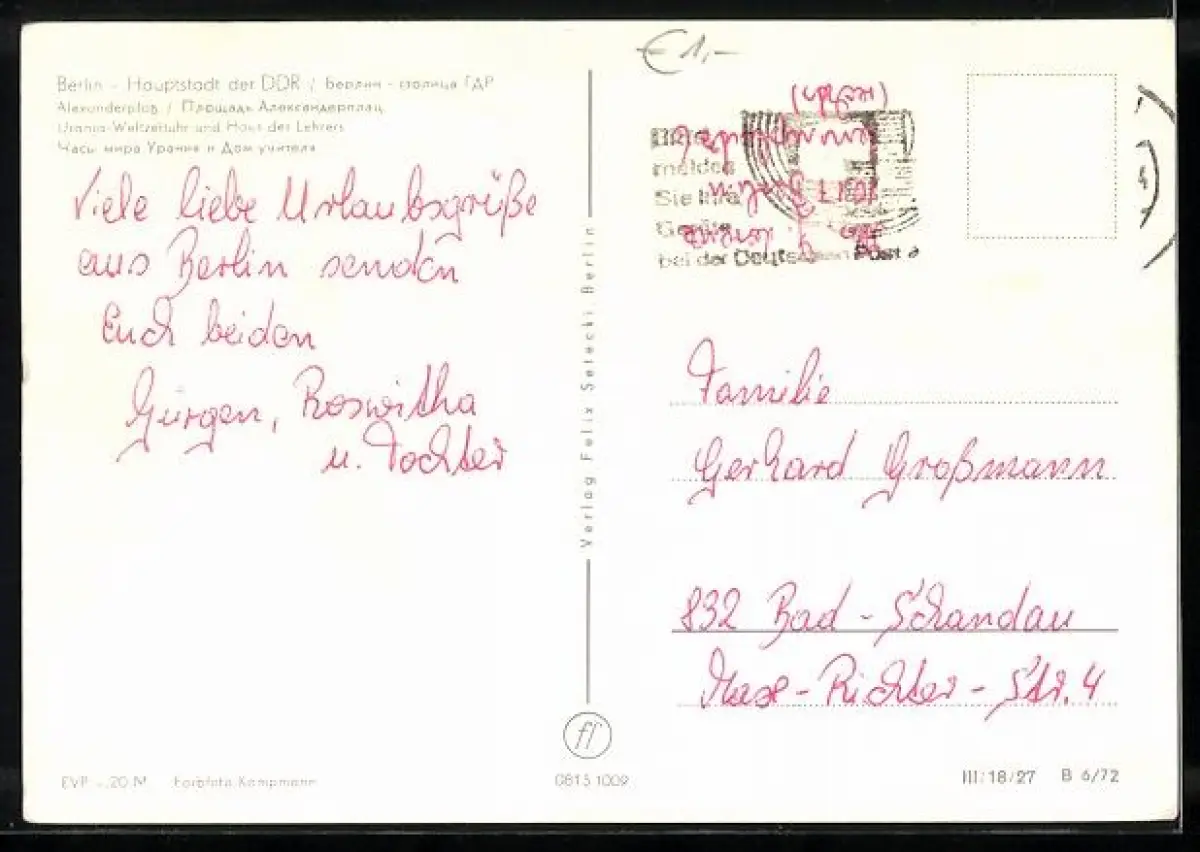 € 1,-
Berlin – Hauptstadt der DDR / Берлин - столица ГДР
Alexanderplatz / Площадь Александерплац
Urania-Weltzeituhr und Haus des Lehrers
Часы мира Урания и Дом учителя
Viele liebe Urlaubsgrüße
aus Berlin senden
Euch beiden
Jürgen, Roswitha
u. Tochter
Verlag Felix Setecki Berlin
Bitte
melden
Sie Ihre
Geräte
bei der Deutschen Post
Familie
Gerhard Großmann
832 Bad - Schandau
Max - Richter - Str. 4
EVP -,20 M Farbfoto Kampmann
0815 1009
III/18/27 B 6/72